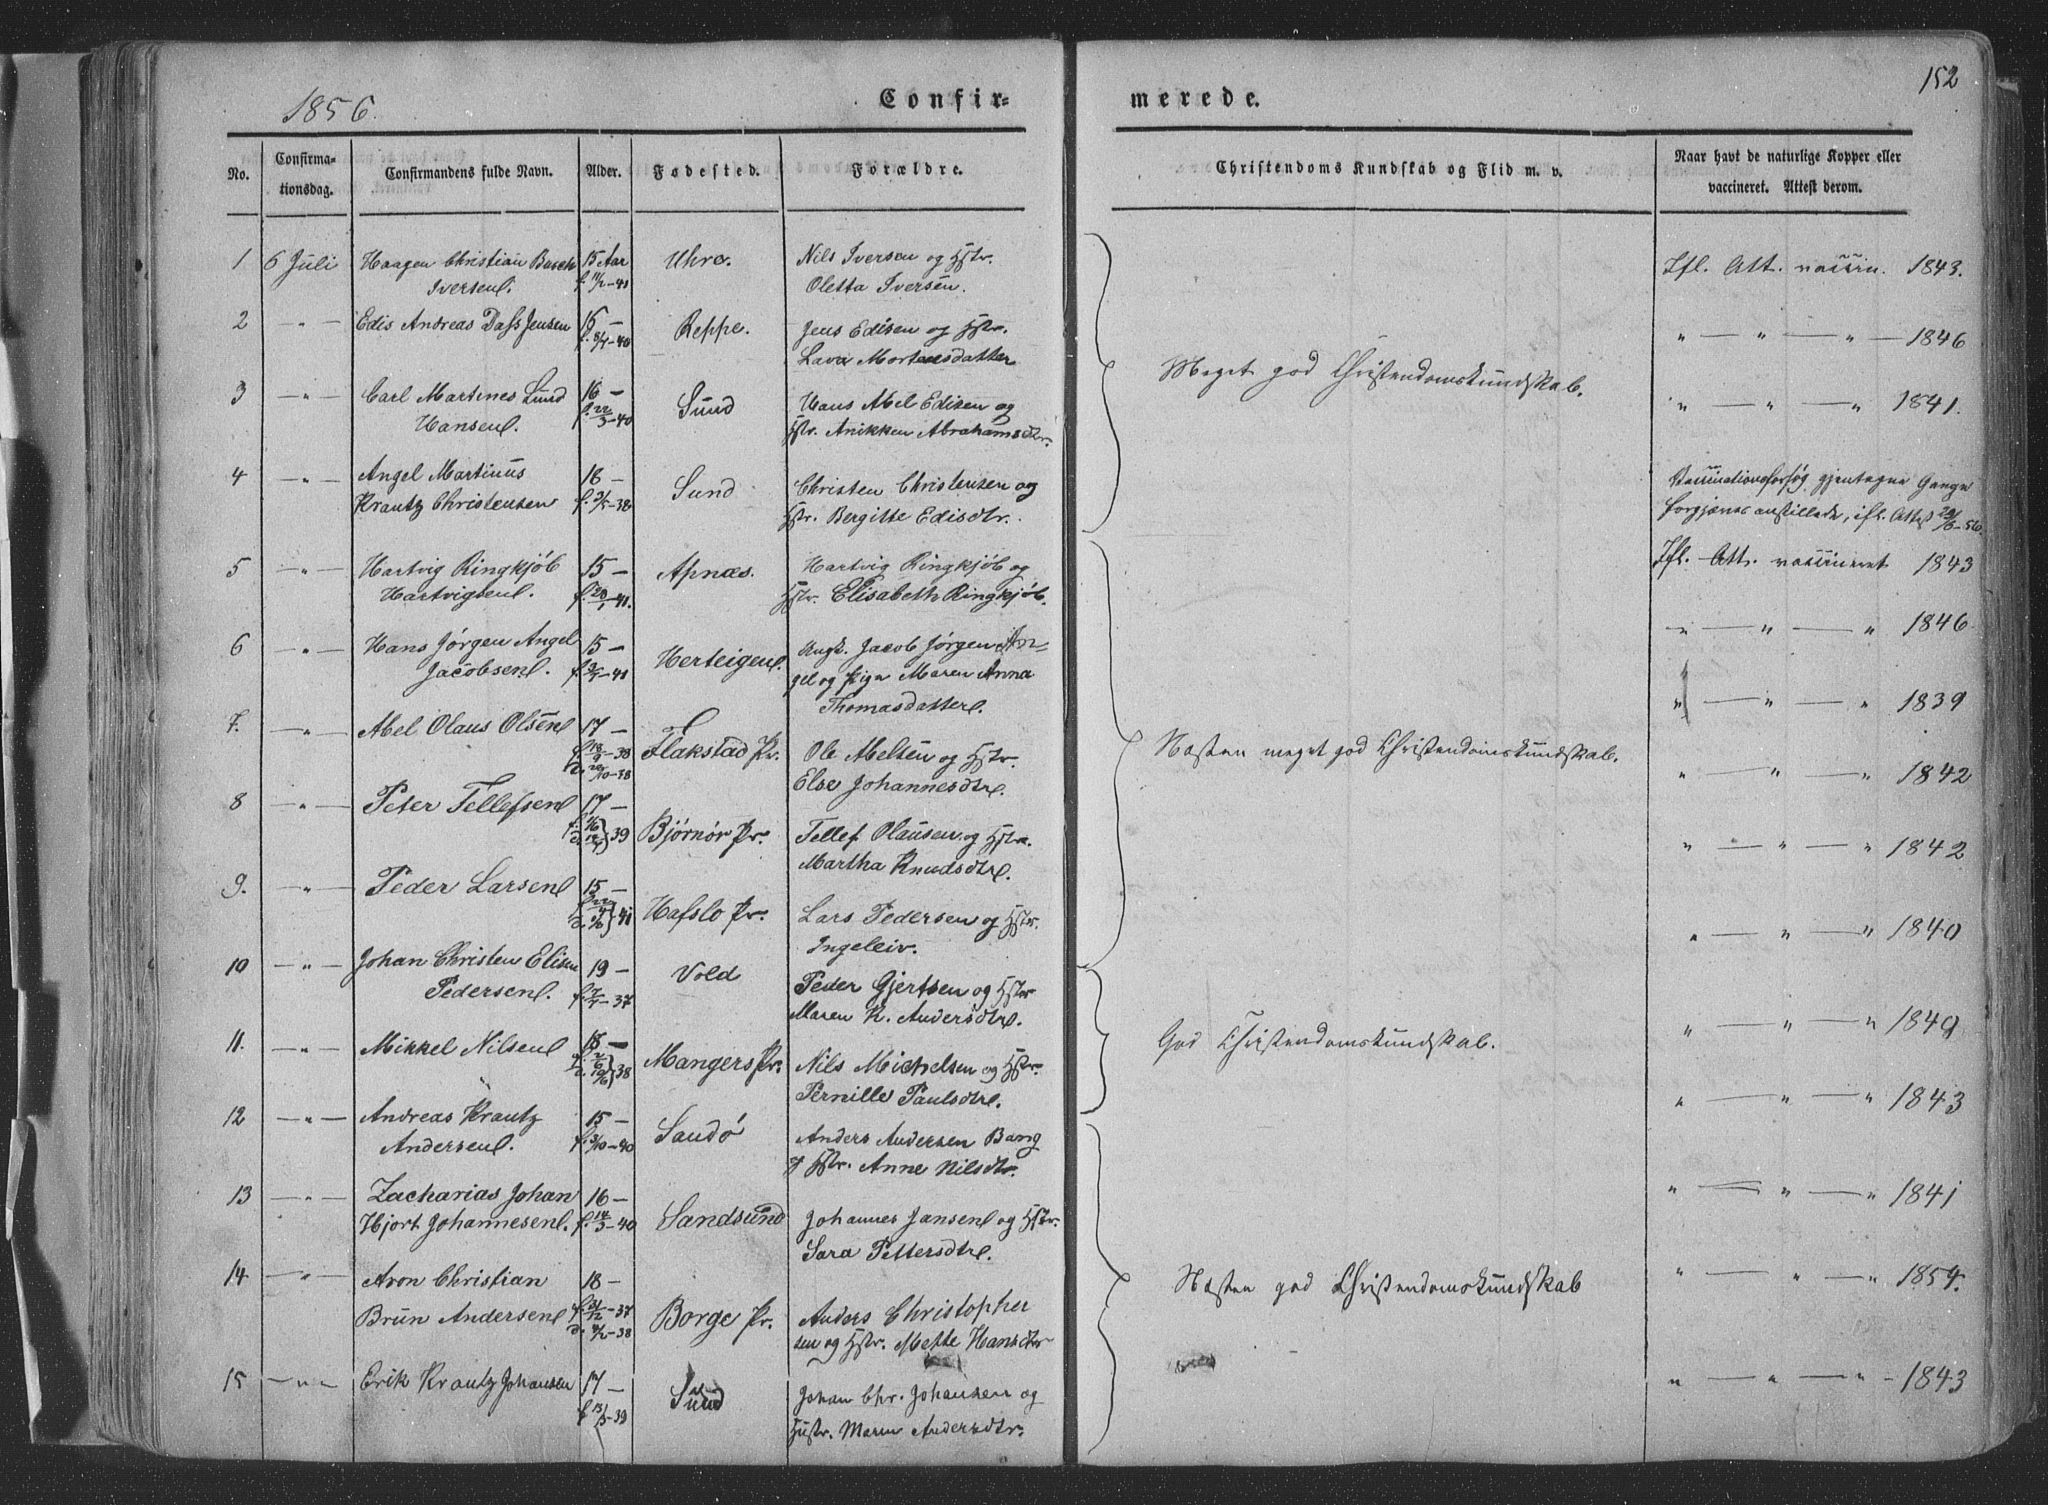 152
1856.
Confir-
merede.
No.
Confirma-
tionsdag.
Confirmandens fulde Navn.
Alder.
Fødested.
Forældre.
Christendoms Kundskab og Flid m. v.
Naar havt de naturlige Kopper eller
vaccineret. Attest derom.
1 6 Juli Haagen Christian Busch 15 Aar Uhre. Nils Iversen og Hstr.
Iversen. f. 11/2-41 Oletta Iversen.
Ifl. Att. vaccin. 1843.
2 -"- Edis Andreas Dass Jensen 16 - Reppe. Jens Edisen og Hstr.
-40 Lava Mortensdatter
" - " - " - 1846
3 -"- Carl Martines Sund 16 - Sund Hans Abel Edisen og
Hansen. f. 22/3-40 Hstr. Anikken Abrahamsdtr.
" - " - " 1841.
Meget god Christendomskundskab.
4 -"- Angel Martinus 18 - Sund Christen Christensen og
Krantz Christensen f. 3/5-38 Hstr. Bergitte Edisdtr.
Vaccinationsforsøg gjentagne Gange
forgjæves anstillede, ifl. Attest
5 -"- Hartvig Ringkjøb 15 - Apnæs. Hartvig Ringkjøb og
Hartvigsen. f. 20/1-41. Hstr. Elisabeth Ringkjøb.
Ifl. Att. vaccineret 1843
6 -"- Hans Jørgen Angel 15 - Herteigen. Ungk. Jacob Jørgen An-
Jacobsen. -41 gel og Pige Maren Anna
Thomasdatter.
" - " - " 1846
7. -"- Abel Olaus Olsen 17 - Flakstad Pr. Ole Abelsen og Hstr.
f. 18/9-38 Else Johannesdtr.
d. -38
" - " - " 1839
Næsten meget god Christendomskundskab.
8 -"- Peter Tellefsen 17 - Bjørnør Pr. Tellef Olausen og Hstr.
39 Martha Knudsdtr.
" - " - " 1842
9. -"- Peder Larsen 15 - Hafslo Pr. Lars Pedersen og Hstr.
41 Ingeleiv.
" - " - " 1842
10 -"- Johan Christen Elisen 19 - Vold Peder Gjertsen og Hstr
Pedersen. -37 Maren K. Andersdtr.
" - " - " 1840
11. -"- Mikkel Nilsen 18 - Mangers Pr. Nils Michelsen og Hstr.
38 Pernille Paulsdtr.
" - " - " 1840
God Christendomskundskab.
12 -"- Andreas Krantz 15 - Sandö Anders Andersen Bang
Andersen. f. 3/10-40 og Hstr. Anne Nilsdtr.
" - " - " 1843
13 -"- Zacharias Johan 16 - Sandsund Johannes Jansen og Hstr.
Hjort Johannesen. f. 14/3-40 Sara Pettersdtr.
" - " - " 1841
14. -"- Aron Christian 18 - Borge Pr. Anders Christopher
Brun Andersen f. 31/12-37 sen og Hstr. Mette Hansdtr
d. 4/2-38
" - " - " 1854.
Næsten god Christendomskundskab
15 -"- Erik Krantz Johansen 17 - Sund Johan Chr. Johansen og
f. 13/3-39 Hustr. Maren Andersdtr.
" - " - " - 1843